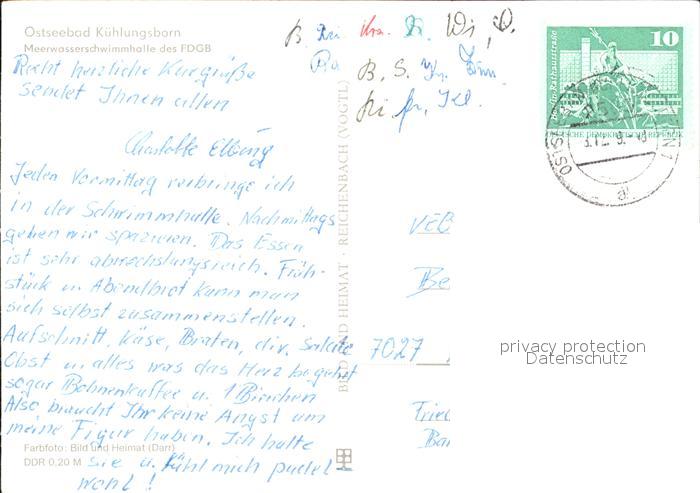 Ostseebad Kühlungsborn
Meerwasserschwimmhalle des FDGB
Recht herzliche Kurgrüße
sendet Ihnen allen
Charlotte Elbing
Jeden Vormittag verbringe ich
in der Schwimmhalle. Nachmittags
gehen wir spazieren. Das Essen
ist sehr abwechslungsreich. Früh-
stück u. Abendbrot kann man
sich selbst zusammenstellen.
Aufschnitt, Käse, Braten, div. Salate
Obst u. alles was das Herz begehrt
sogar Bohnenkaffee u. 1 Bierchen
Also braucht Ihr keine Angst um
meine Figur haben. Ich halte
sie u. fühl mich pudel-
wohl!
Farbfoto: Bild und Heimat (Darr)
DDR 0,20 M
BILD UND HEIMAT · REICHENBACH (VOGTL)
B. Kra. Wi,
B. S.
Ki
10
Berlin-Rathausstraße
DEUTSCHE DEMOKRATISCHE REPUBLIK
VEB
Be
7027
Fried
Bau
privacy protection
Datenschutz